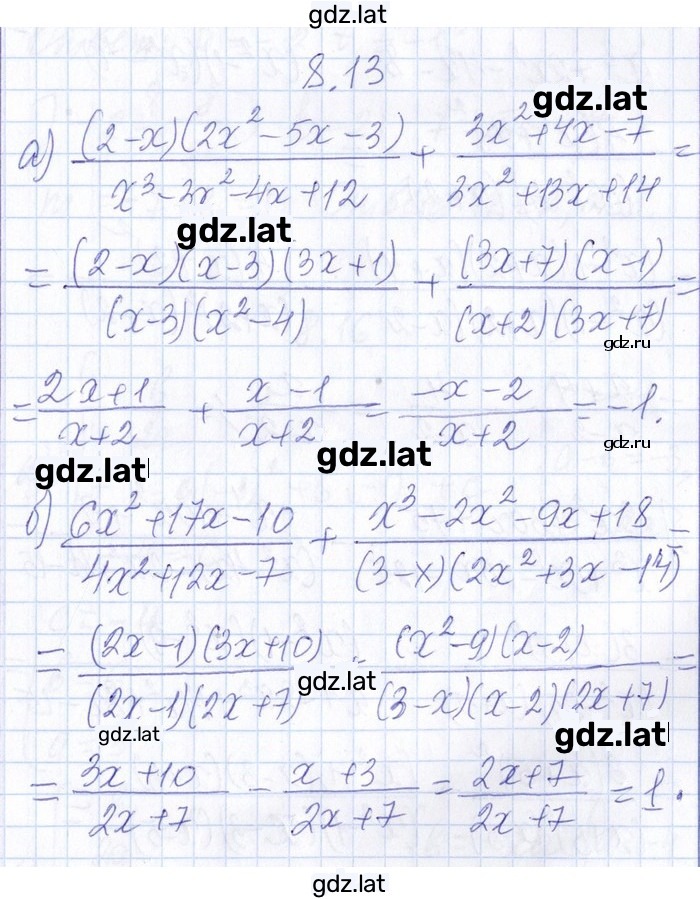 gdz.lat
8.13
gdz.lat
а) (2-x)(2x²-5x-3)/(x³-3x²-4x+12) + (3x²+4x-7)/(3x²+13x+14) =
gdz.lat
= (2-x)(x-3)(3x+1)/((x-3)(x²-4)) + (3x+7)(x-1)/((x+2)(3x+7)) =
gdz.ru
= (2x+1)/(x+2) + (x-1)/(x+2) = (-x-2)/(x+2) = -1.
gdz.lat
gdz.ru
gdz.lat
б) (6x²+17x-10)/(4x²+12x-7) + (x³-2x²-9x+18)/((3-x)(2x²+3x-14)) =
= (2x-1)(3x+10)/((2x-1)(2x+7)) - (x²-9)(x-2)/((3-x)(x-2)(2x+7)) =
gdz.lat
gdz.lat
gdz.lat
= (3x+10)/(2x+7) - (x+3)/(2x+7) = (2x+7)/(2x+7) = 1.
gdz.lat